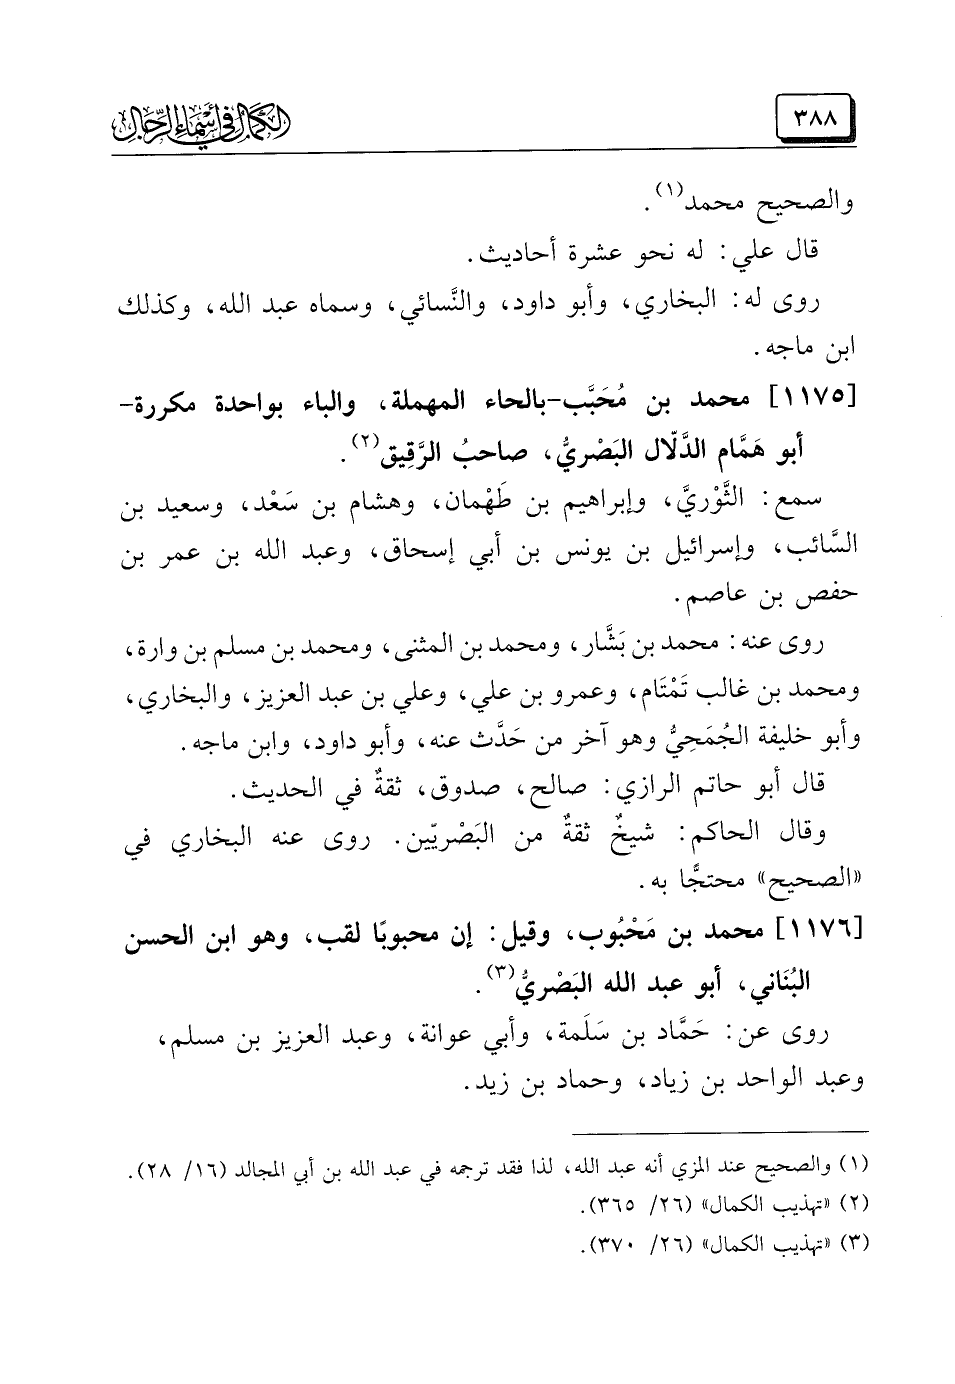 ٣٨٨
الكمال في أسماء الرجال
والصحيح محمد(١).
قال علي: له نحو عشرة أحاديث.
روى له: البخاري، وأبو داود، والنَّسائي، وسماه عبد الله، وكذلك
ابن ماجه.
[١١٧٥] محمد بن مُحَبَّب-بالحاء المهملة، والباء بواحدة مكررة-
أبو هَمَّام الدَّلّال البَصْريُّ، صاحبُ الرَّقِيق(٢).
سمع: الثَّوْريَّ، وإبراهيم بن طَهْمان، وهشام بن سَعْد، وسعيد بن
السَّائب، وإسرائيل بن يونس بن أبي إسحاق، وعبد الله بن عمر بن
حفص بن عاصم.
روى عنه: محمد بن بَشَّار، ومحمد بن المثنى، ومحمد بن مسلم بن وارة،
ومحمد بن غالب تَمْتَام، وعمرو بن علي، وعلي بن عبد العزيز، والبخاري،
وأبو خليفة الجُمَحِيُّ وهو آخر من حَدَّث عنه، وأبو داود، وابن ماجه.
قال أبو حاتم الرازي: صالح، صدوق، ثقةٌ في الحديث.
وقال الحاكم: شيخٌ ثقةٌ من البَصْريّين. روى عنه البخاري في
«الصحيح» محتجًّا به.
[١١٧٦] محمد بن مَحْبُوب، وقيل: إن محبوبًا لقب، وهو ابن الحسن
البُنَاني، أبو عبد الله البَصْريُّ(٣).
روى عن: حَمَّاد بن سَلَمة، وأبي عوانة، وعبد العزيز بن مسلم،
وعبد الواحد بن زياد، وحماد بن زيد.
(١) والصحيح عند المزي أنه عبد الله، لذا فقد ترجمه في عبد الله بن أبي المجالد (١٦/ ٢٨).
(٢) «تهذيب الكمال» (٢٦/ ٣٦٥).
(٣) «تهذيب الكمال» (٢٦/ ٣٧٠).